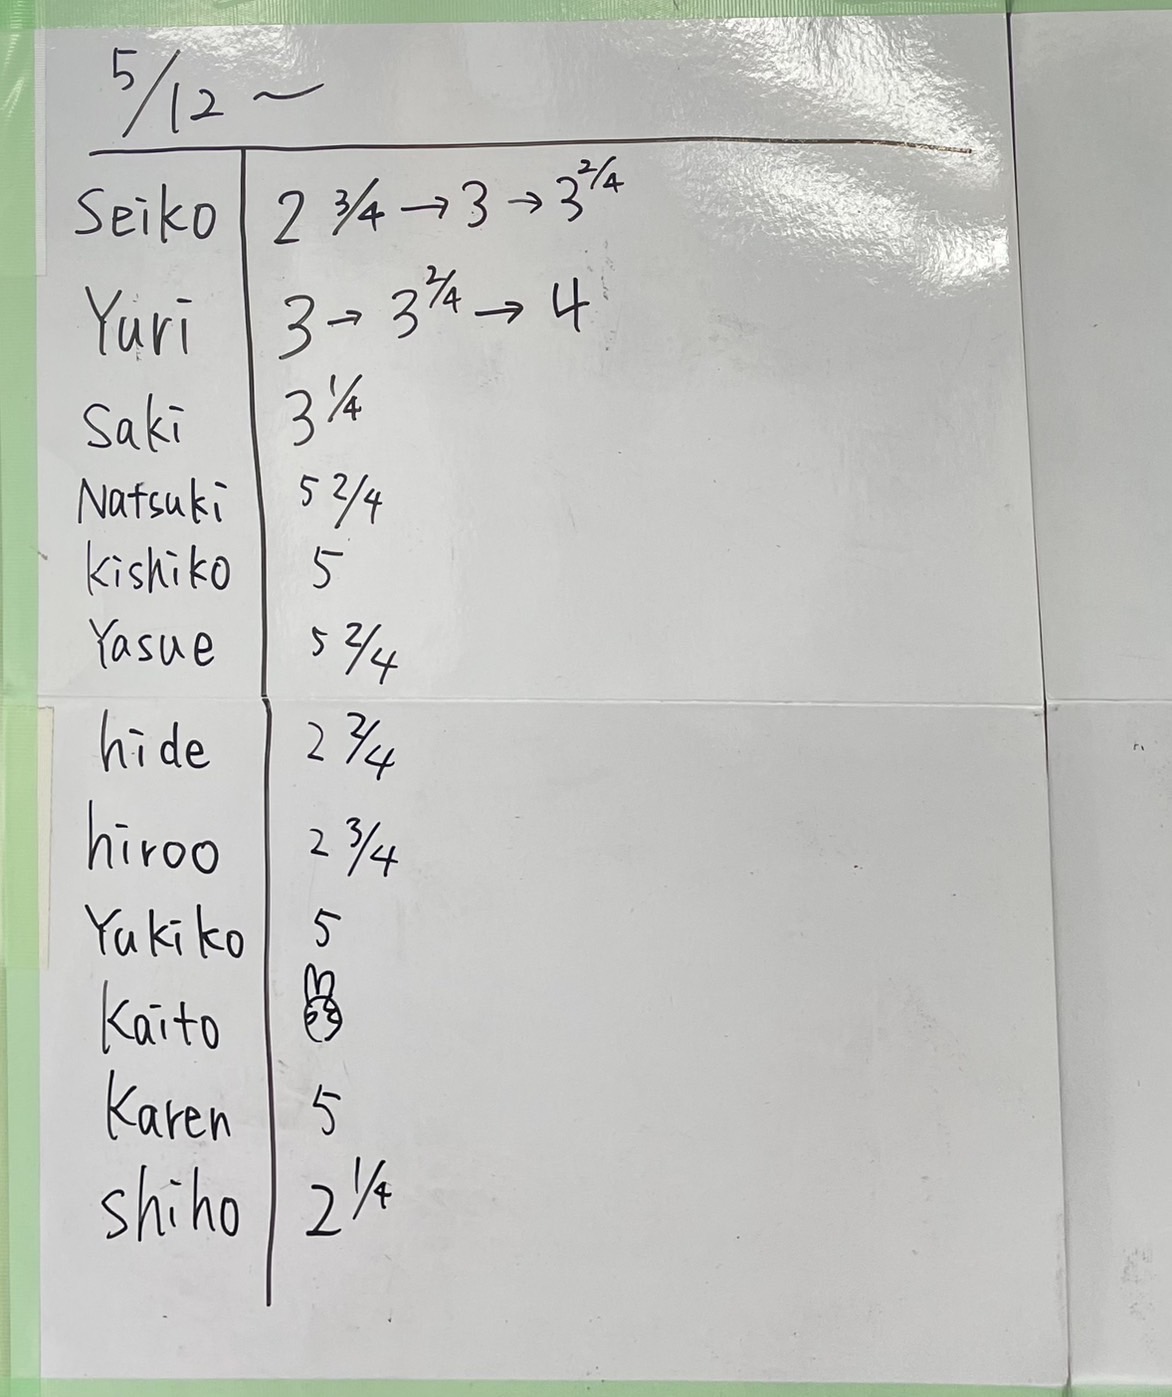 5/12 ~
Seiko 2 3/4 → 3 → 3 2/4
Yuri 3 → 3 2/4 → 4
Saki 3 1/4
Natsuki 5 2/4
kishiko 5
Yasue 5 2/4
hide 2 2/4
hiroo 2 3/4
Yukiko 5
Kaito
Karen 5
shiho 2 1/4